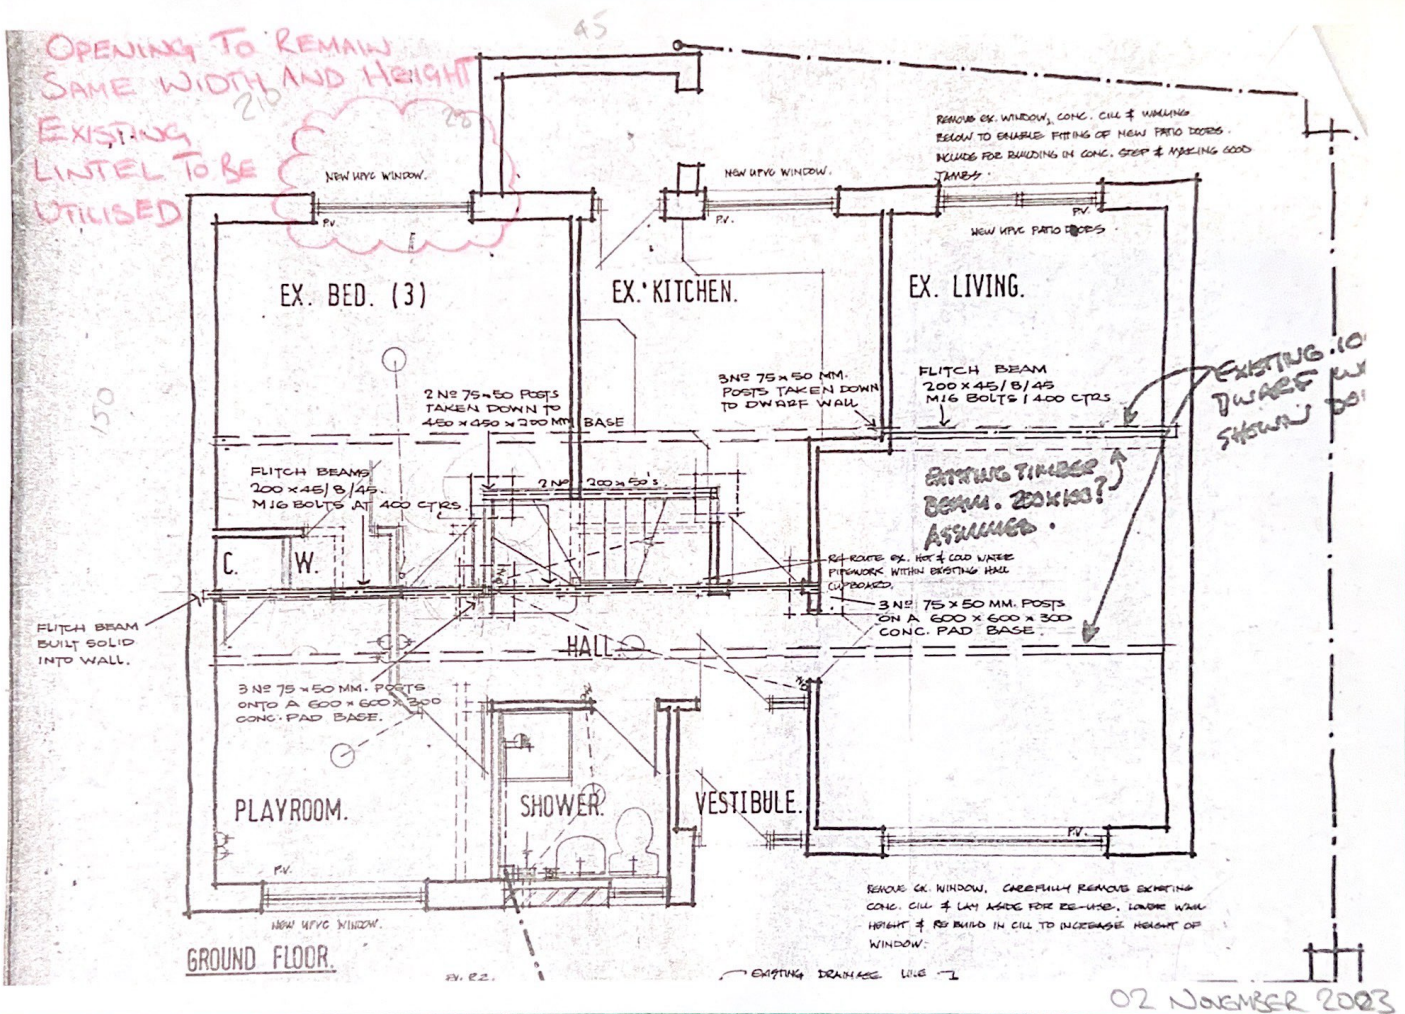 45
OPENING TO REMAIN
SAME WIDTH AND HEIGHT
210
28
EXISTING
LINTEL TO BE
UTILISED
NEW UPVC WINDOW.
P.V.
NEW UPVC WINDOW.
P.V.
REMOVE EX. WINDOW, CONC. CILL & WALLING
BELOW TO ENABLE FITTING OF NEW PATIO DOORS.
INCLUDE FOR BUILDING IN CONC. STEP & MAKING GOOD
JAMBS.
P.V.
NEW UPVC PATIO DOORS.
EX. BED. (3)
EX. KITCHEN.
EX. LIVING.
150
2 Nº 75 x 50 POSTS
TAKEN DOWN TO
450 x 450 x 200 MM BASE
3 Nº 75 x 50 MM.
POSTS TAKEN DOWN
TO DWARF WALL
FLITCH BEAM
200 x 45/8/45
M16 BOLTS / 400 CTRS
EXISTING
DWARF
SHOWN
EXISTING TIMBER
BEAM. 200x100?
ASSUMED.
FLITCH BEAMS
200 x 45/8/45.
M16 BOLTS AT 400 CTRS.
2 Nº 200 x 50's
C.
W.
RE-ROUTE EX. HOT & COLD WATER
PIPEWORK WITHIN EXISTING HALL
CUPBOARD.
3 Nº 75 x 50 MM. POSTS
ON A 600 x 600 x 300
CONC. PAD BASE.
FLITCH BEAM
BUILT SOLID
INTO WALL.
HALL.
3 Nº 75 x 50 MM. POSTS
ONTO A 600 x 600 x 300
CONC. PAD BASE.
PLAYROOM.
SHOWER.
VESTIBULE.
P.V.
P.V.
NEW UPVC WINDOW.
REMOVE EX. WINDOW. CAREFULLY REMOVE EXISTING
CONC. CILL & LAY ASIDE FOR RE-USE. LOWER WALL
HEIGHT & RE BUILD IN CILL TO INCREASE HEIGHT OF
WINDOW.
GROUND FLOOR.
EXISTING DRAINAGE LINE
02 NOVEMBER 2023